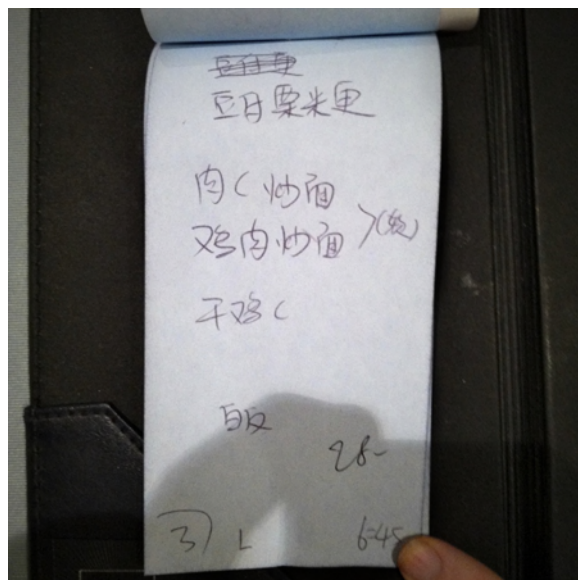 豆甘粟米更
肉く炒面
鸡肉炒面 >(软)
干鸡く
白反
28-
3) L 6:45